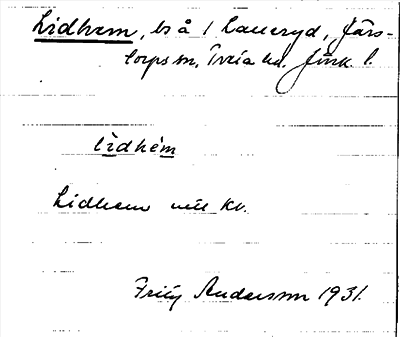 Lidhem, bs å 1 Laueryd, Järs-
torps sn, Tveta hd. Jönk. l.
lìdhém
Lidhem niel kv.
Fritz Andersson 1931.